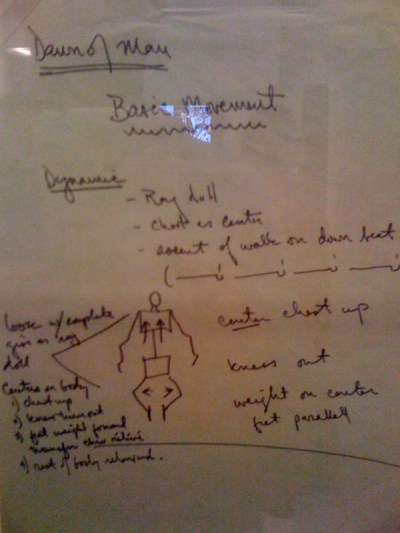 Dawn of Man
Basic Movement
Dynamic
- Rag doll
- chest as center
- accent of walk on down beat
center chest up
knees out
weight on center
feet parallel
loose w/ complete
give as rag
doll
Centers in body
1) chest up
2) knees turn out
3) feet weight forward
4) rest of body released.